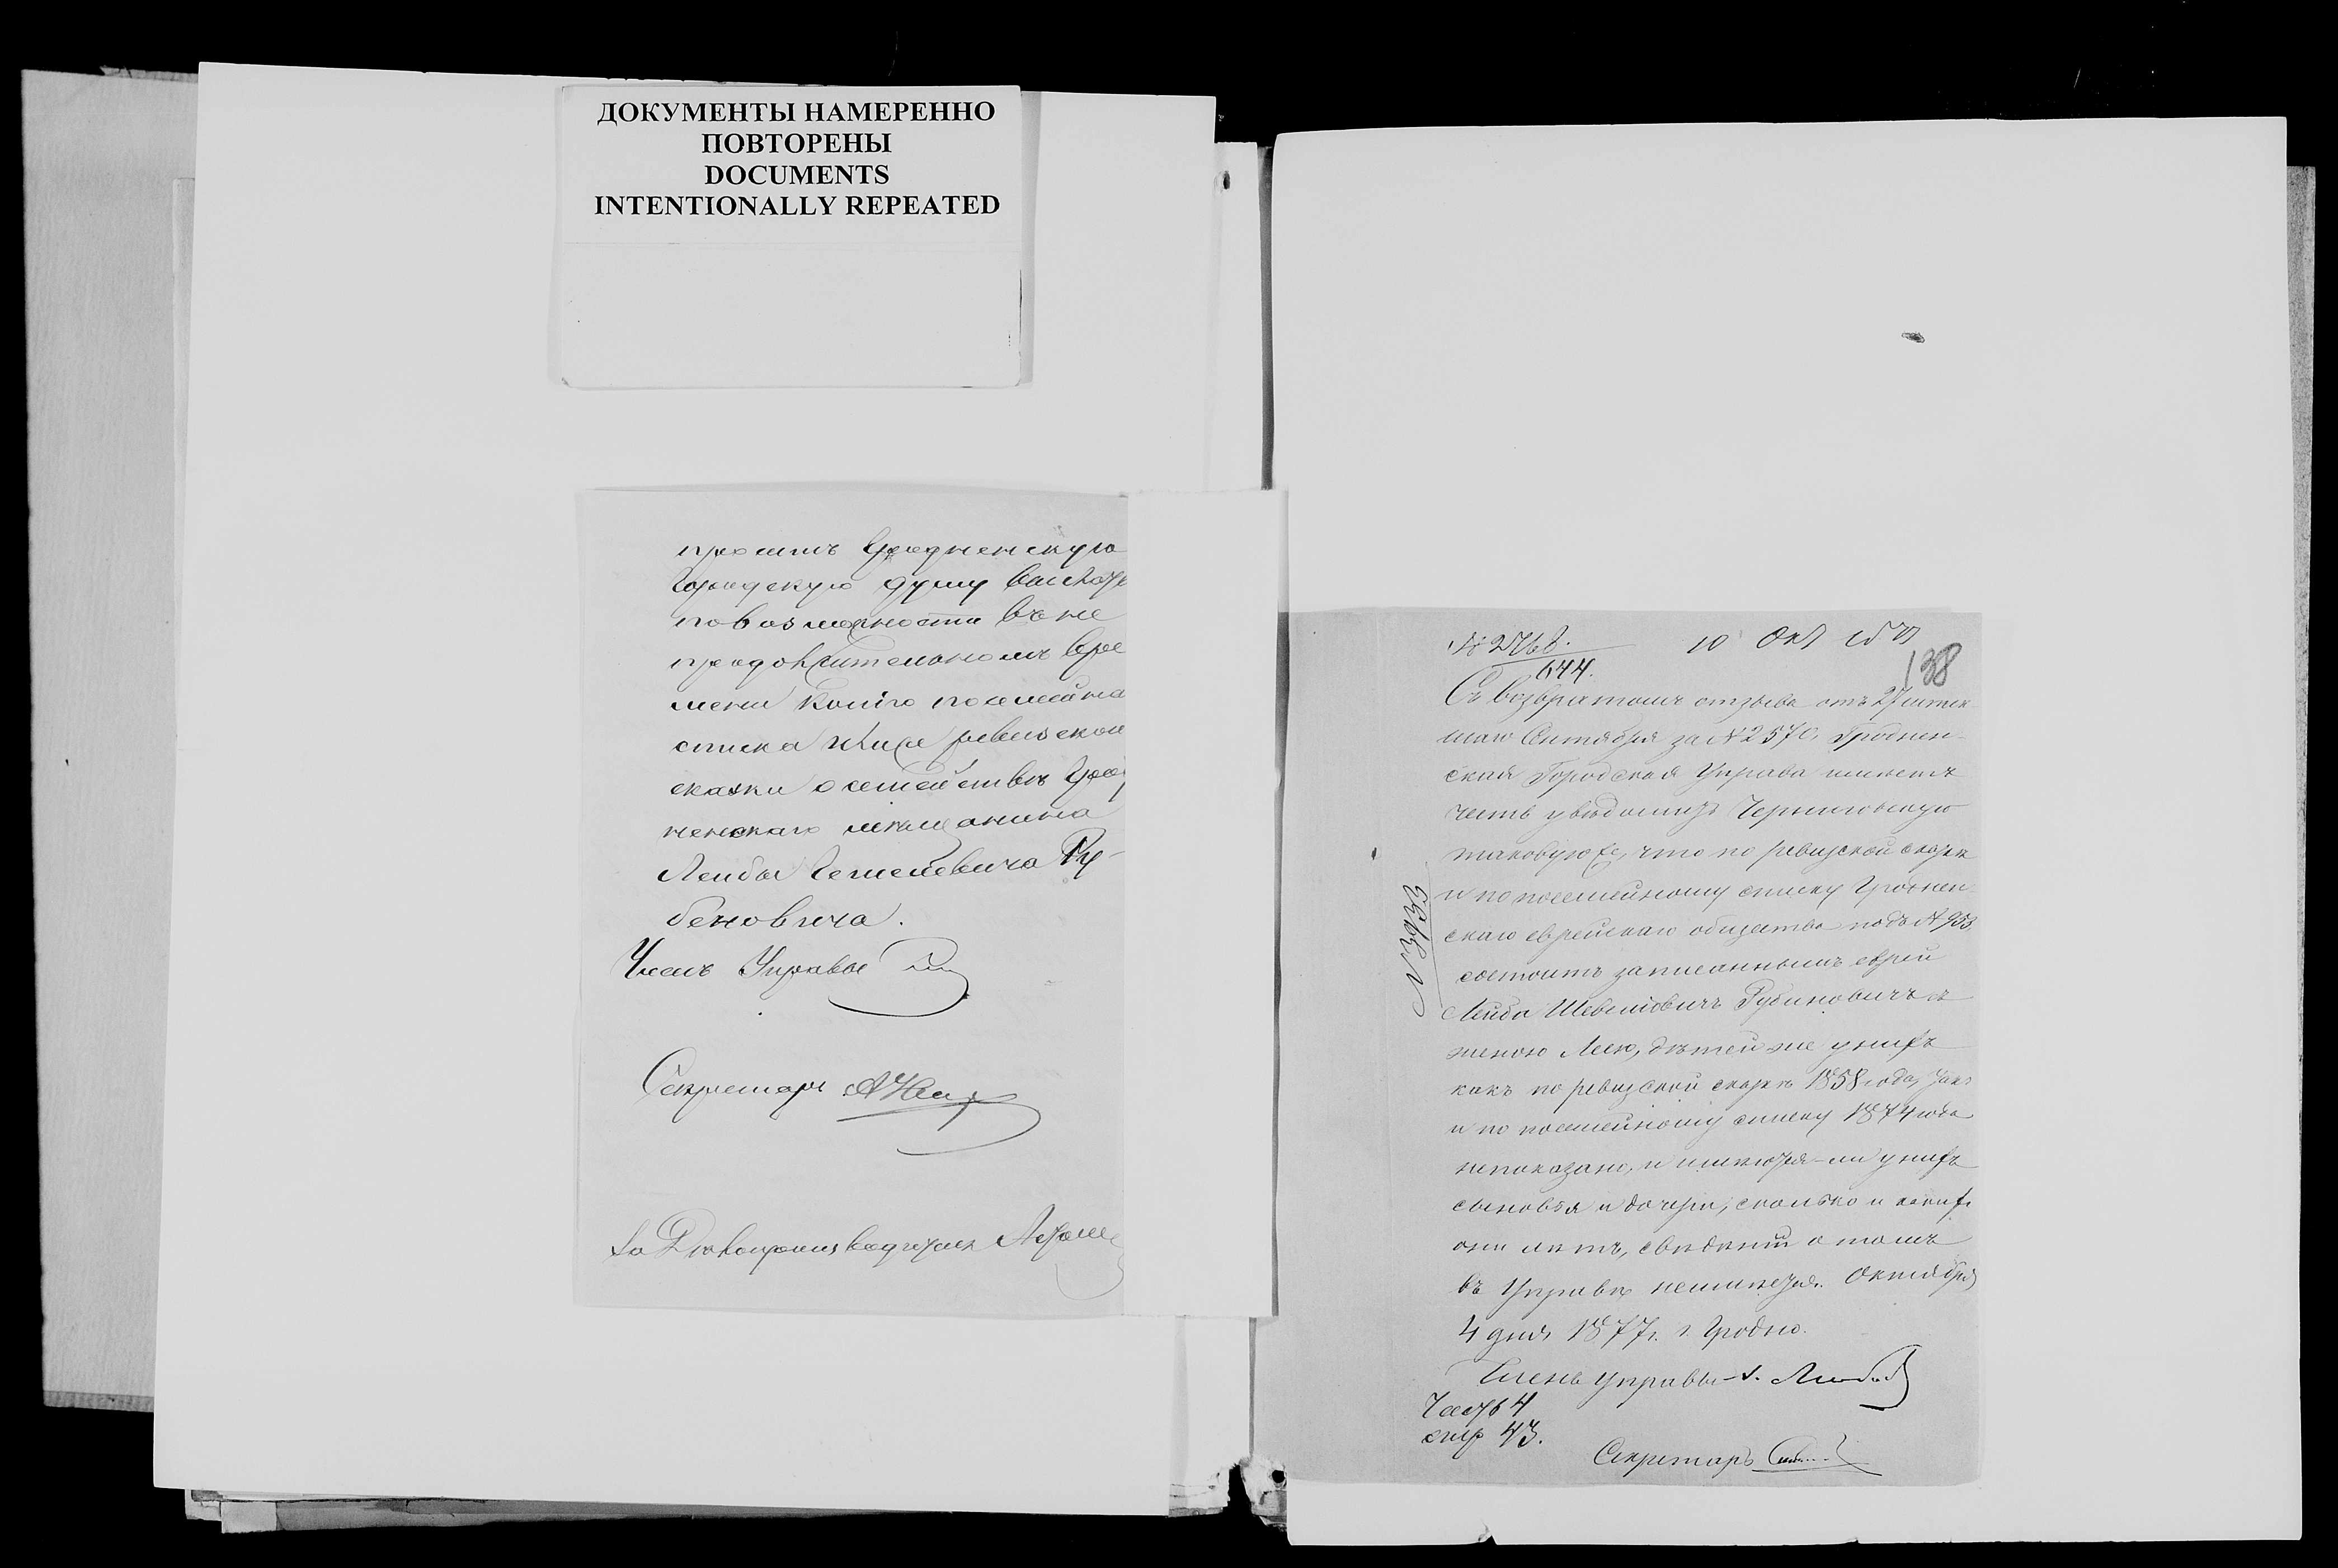 ДОКУМЕНТЫ НАМЕРЕННО
ПОВТОРЕНЫ
DOCUMENTS
INTENTIONALLY REPEATED
просить Гродненскую
Городскую думу выслать
по возможности въ не
продолжительномъ вре
мени копію посемейна
списка и ревизской
сказки о семействѣ Грод
ненскаго мѣщанина
Лейбы Ру-
беновича.
Членъ Управы
Секретарь
За Дѣлопроизводителя
№ 2768. 10 Окт
644.
138
Съ возвратомъ отзыва отъ 27 истек
шаго Сентября за № 2570, Гроднен-
ская Городская Управа имѣетъ
честь увѣдомить Черниговскую
таковую же, что по ревизской сказкѣ
и по посемейному списку Гроднен-
скаго еврейскаго общества подъ № 953
состоитъ записаннымъ еврей
Лейба Шевелювичъ Рубиновичъ съ
женою Леею, дѣтей же у нихъ
какъ по ревизской сказкѣ 1858 года, такъ
и по посемейному списку 1874 года
не показано, и имѣются-ли у нихъ
сыновья и дочери, сколько и какихъ
они лѣтъ, свѣдѣній о томъ
въ Управѣ неимѣется. Октября
4 дня 1877 г. г. Гродно.
Членъ Управы
Часть 4
стр 43.
Секретарь